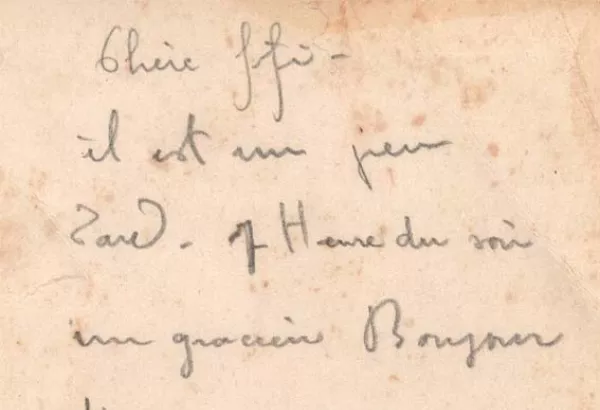 Chère fifi -
il est un peu
Tard. 7 Heure du soir
un gracieu Bonjour